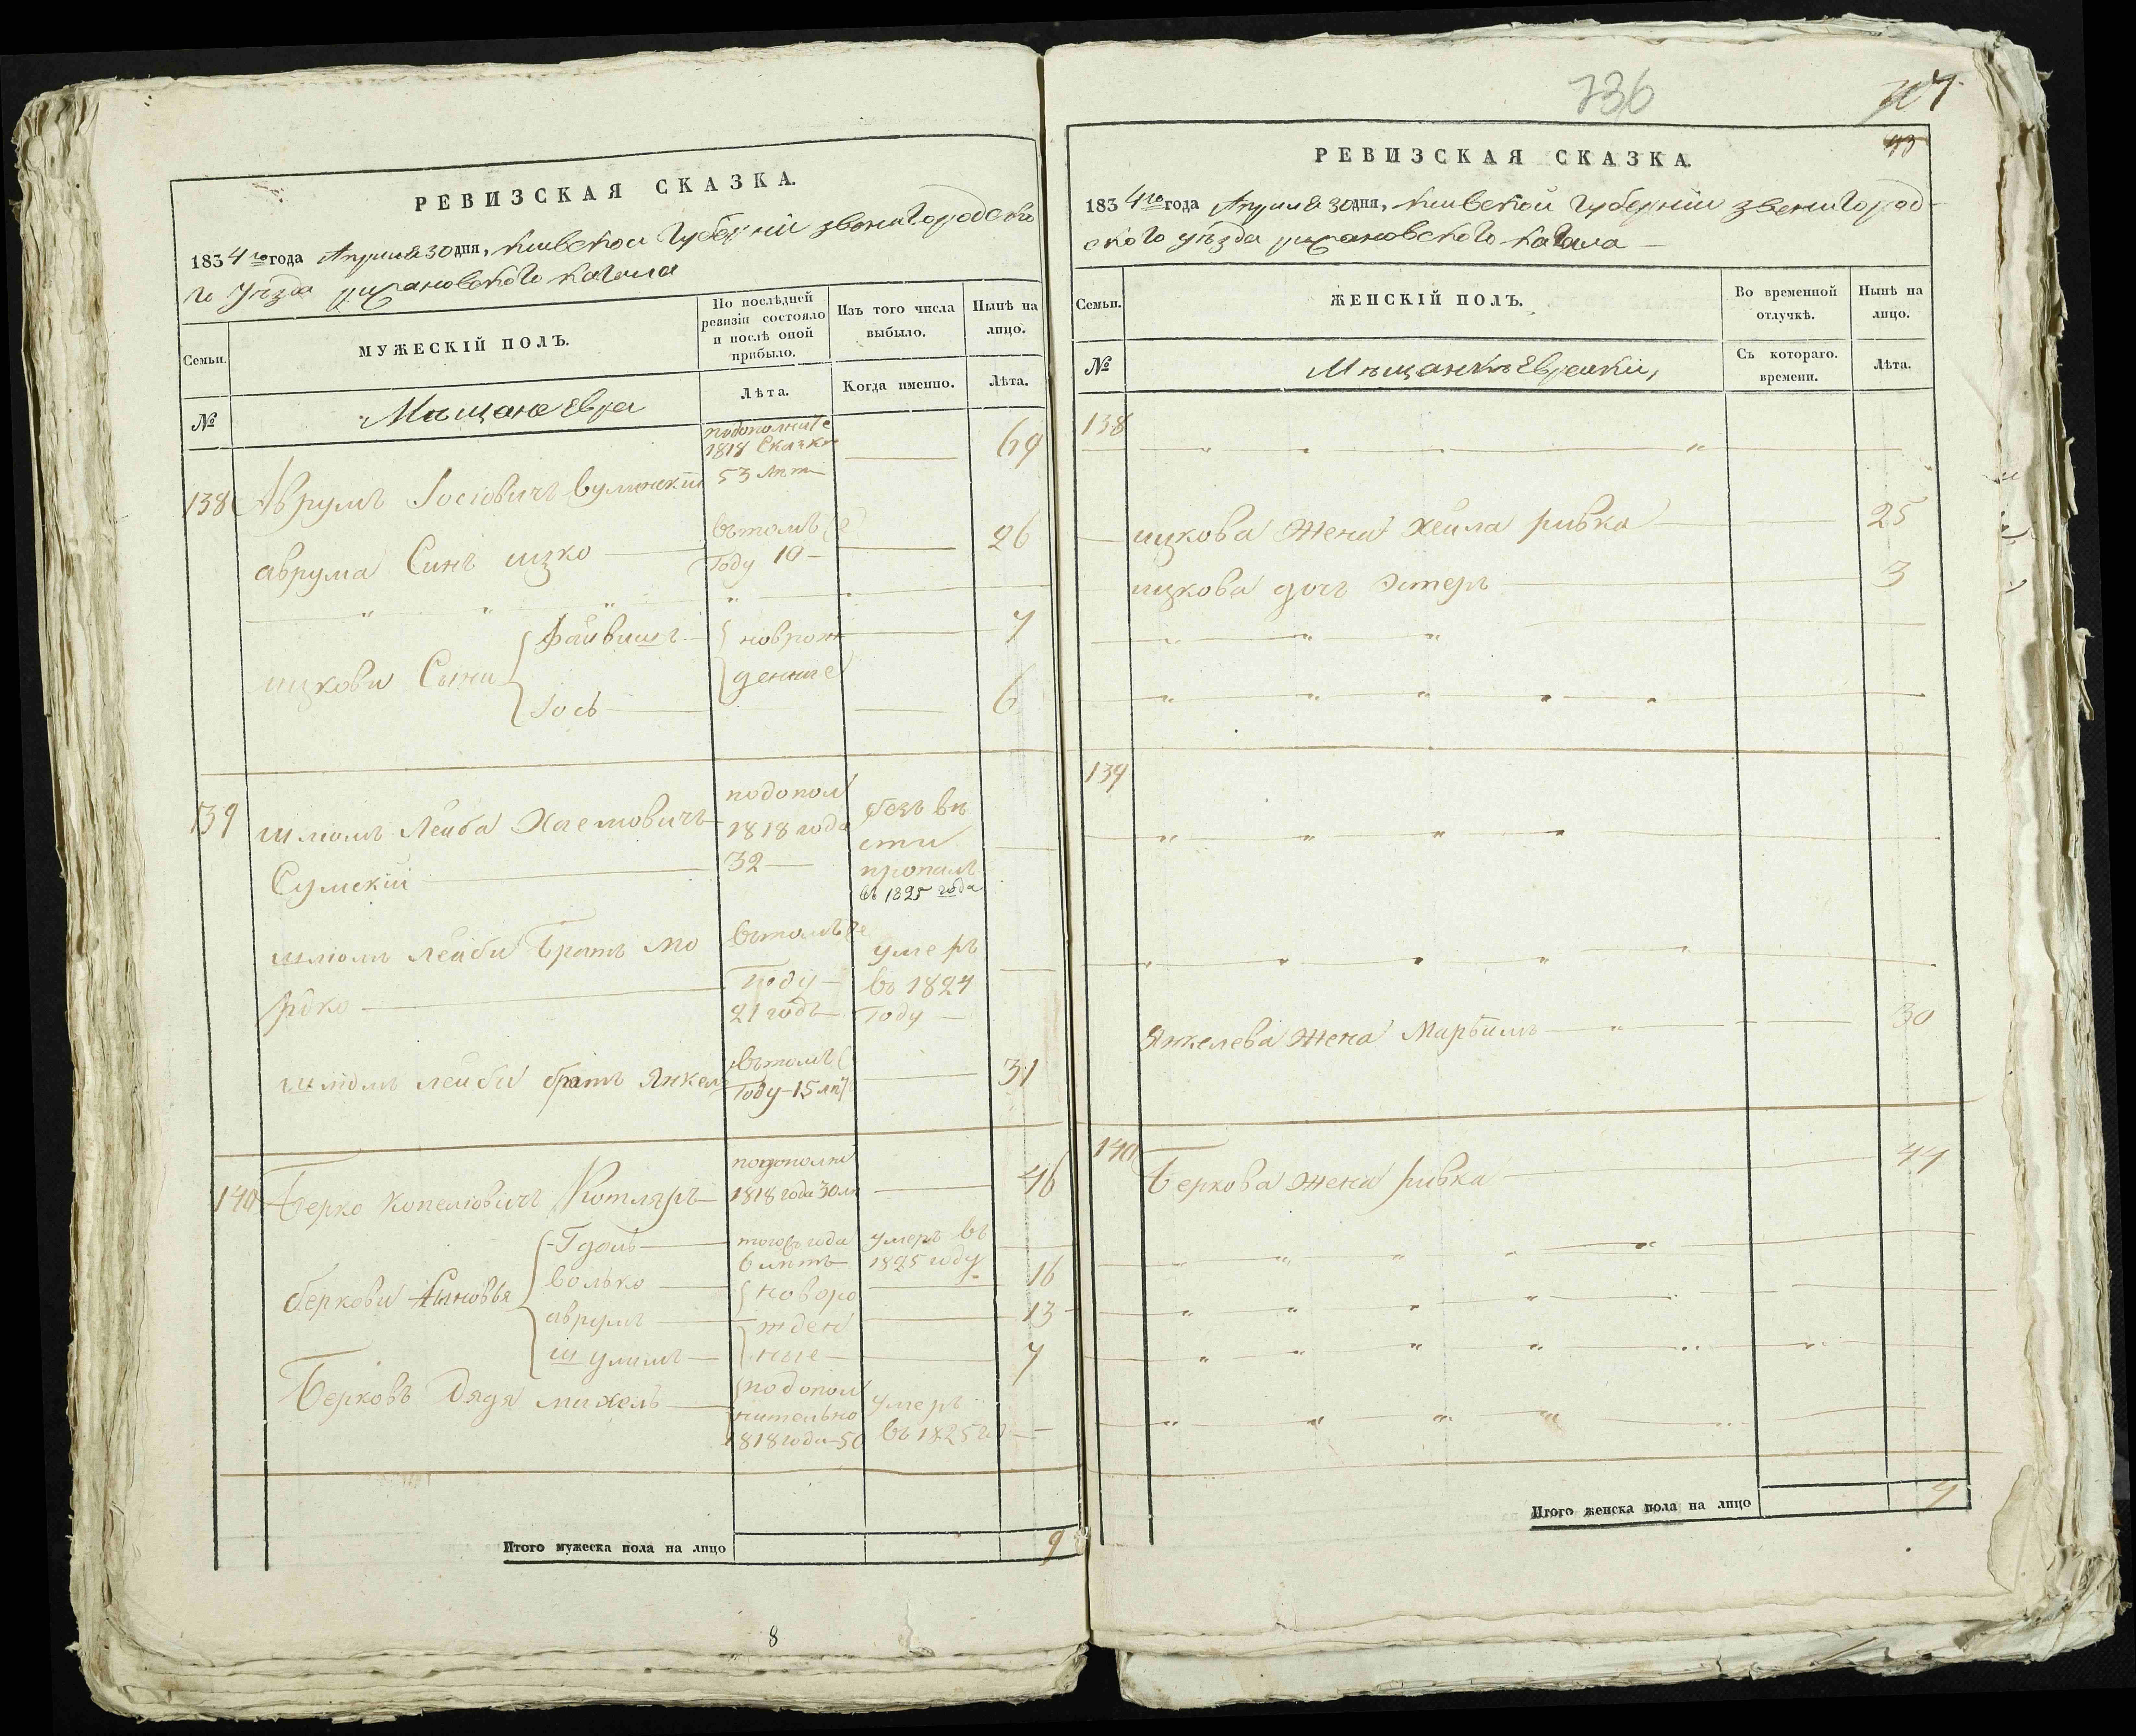 РЕВИЗСКАЯ СКАЗКА.
1834го года Апреля 30 дня, Киевской Губернии звенигородско
го Уѣзда рижановского кагала
Семьи.
МУЖЕСКІЙ ПОЛЪ.
По послѣдней ревизіи состояло и послѣ оной прибыло.
Изъ того числа выбыло.
Нынѣ на лицо.
№
Мѣщане Евреи
Лѣта.
Когда именно.
Лѣта.
подополните
1818 Сказки
53 лѣт
69
138 Аврумъ Іосіовичъ
аврума Синъ ицко
въ томъ же
Году 10
26
ицкови Сыни
Файвишъ
новрож
7
денние
Іось
6
139 шліомъ Лейба Хаемовичъ
Сумскій
подопол
1818 года
32
безъ вѣ
сти
пропалъ
въ 1825 года
шліомъ лейби Братъ мо
рдко
въ томъ же
Году
21 годъ
умеръ
въ 1827
Году
шліомъ лейби братъ Янкель
въ томъ
Году 15 лѣт
31
140 Берко Копеліовичъ Котляръ
подополни
1818 года 30 лѣ
46
беркови Синовья
Гдаль
тогожъ года
6 лѣтъ
умеръ въ
1825 году
волько
новоро
16
аврумъ
жден
13
шулимъ
ные
7
Берковъ Дядя михель
подопол
нительно
1818 года 50
умеръ
въ 1825 го
Итого мужеска пола на лицо
9
8
736
107
43
РЕВИЗСКАЯ СКАЗКА.
1834го года Апреля 30 дня, Киевской Губернии звенигород
ского уѣзда рижановского кагала
Семьи.
ЖЕНСКІЙ ПОЛЪ.
Во временной отлучкѣ.
Нынѣ на лицо.
№
Мѣщанкѣ Еврейкіи,
Съ котораго. времени.
Лѣта.
138
ицкова Жена хейла ривка
25
ицкова дочъ Эстеръ
3
139
Янкелева жена Марьимъ
30
140
Беркова жена ривка
44
Итого женска пола на лицо
4